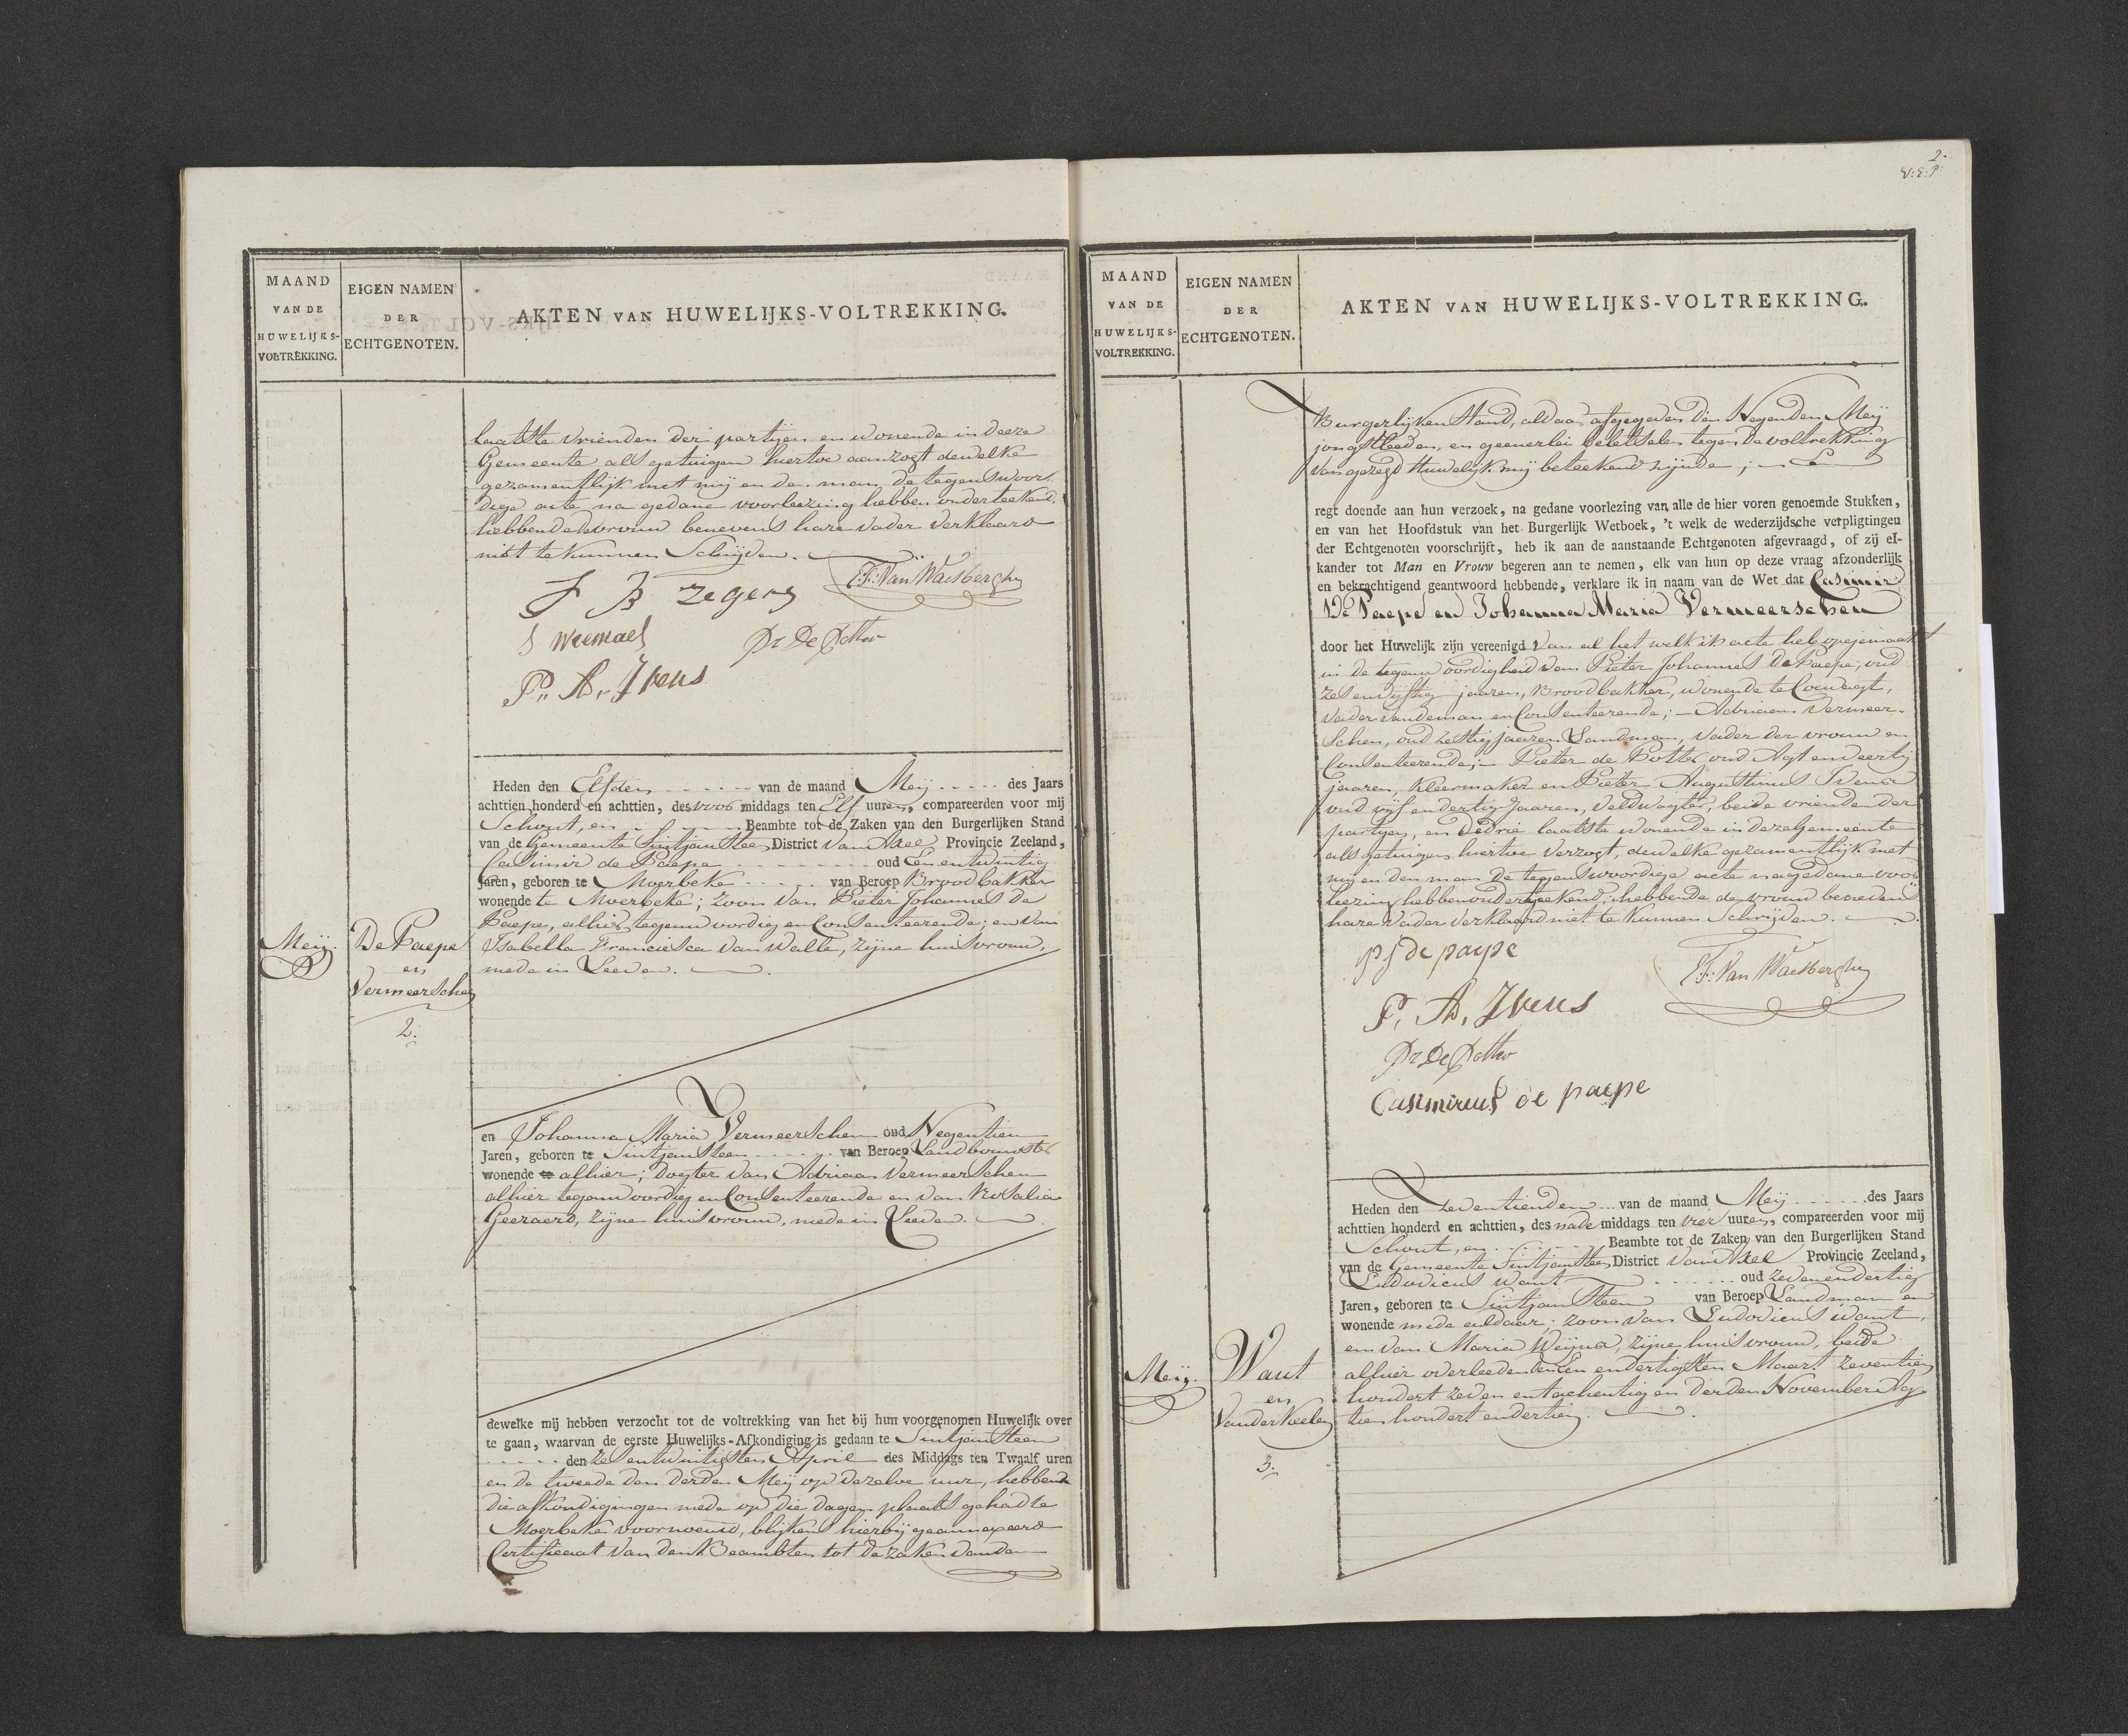 MAAND
VAN DE
HUWELIJKS-
VOLTREKKING.
EIGEN NAMEN
DER
ECHTGENOTEN.
AKTEN VAN HUWELIJKS-VOLTREKKING.
laatste vrienden der partijen en wonende in deeze
Gemeente als getuigen hiertoe aanzogt dewelke
gezamentlijk met mij en den man, de tegenswoor-
dige acte na gedane voorleezing hebben onderteekend.
hebbende de vrouw benevens hare vader verklaard
niet te kunnen Schrijden.
J B Zegers
F:F: Van Waesberghe
J Weemaes
Pr De Potter
P. A. Ivens
Meij.
De Paepe
en
Vermeerschen
2.
Heden den Elfden van de maand Meij des Jaars
achttien honderd en achttien, des voor middags ten Elf uuren, compareerden voor mij
Schout, en Beambte tot de Zaken van den Burgerlijken Stand
van de Gemeente Sintjansteen District van Axel Provincie Zeeland,
Casimir de Paepe oud Een entwintig
Jaren, geboren te Moerbeke van Beroep Broodbakker
wonende te Moerbeke; zoon van Pieter Johannes de
Paepe, alhier tegenwoordig en Consenteerende; en van
Isabella Francisca van Walle, zijne huisvrouw,
mede in Leeven.
en Johanna Maria Vermeerschen oud Negentien
Jaren, geboren te Sintjansteen van Beroep Landbouwster
wonende te alhier; dogter van Adriaan Vermeerschen
alhier tegenwoordig en Consenteerende en van Rosalia
Geeraerd, zijne huisvrouw, mede in Leeven.
dewelke mij hebben verzocht tot de voltrekking van het bij hun voorgenomen Huwelijk over
te gaan, waarvan de eerste Huwelijks-Afkondiging is gedaan te Sintjansteen
den zes entwintigsten April des Middags ten Twaalf uren
en de tweede den derden Meij op dezelve uur, hebbende
die afkondigingen mede op die dagen plaats gehad te
Moerbeke voornoemd, blijkens hierbij geannexeerd
Certificaat van den Beambten tot de zaken van den
2.
V:E:P:
MAAND
VAN DE
HUWELIJKS-
VOLTREKKING.
EIGEN NAMEN
DER
ECHTGENOTEN.
AKTEN VAN HUWELIJKS-VOLTREKKING.
Burgerlijken Stand, aldaar afgegeven den Negenden Meij
jongstleeden, en geenerlei beletselen tegen de voltrekking
van gezegd Huwelijk mij beteekend zijnde;
regt doende aan hun verzoek, na gedane voorlezing van alle de hier voren genoemde Stukken,
en van het Hoofdstuk van het Burgerlijk Wetboek, 't welk de wederzijdsche verpligtingen
der Echtgenoten voorschrijft, heb ik aan de aanstaande Echtgenoten afgevraagd, of zij el-
kander tot Man en Vrouw begeren aan te nemen, elk van hun op deze vraag afzonderlijk
en bekrachtigend geantwoord hebbende, verklare ik in naam van de Wet dat Casimir
De Paepe en Johanna Maria Vermeerschen
door het Huwelijk zijn vereenigd van al het welk ik acte heb opgemaakt
in de tegenwoordigheid van Pieter Johannes De Paepe, oud
zes en vijftig jaaren, Broodbakker, wonende te Coewagt,
vader van den man en Consenteerende; — Adriaan Vermeer-
schen, oud zestig jaaren Landman, vader der vrouw en
Consenteerende; — Pieter de Potter oud Agt enveertig
jaaren, Kleermaker en Pieter Augustinus Ivens
oud vijf en dertig Jaaren, veldwagter, beide vrienden der
partijen, en de drie laatste wonende in deze Gemeente
als getuigen hiertoe verzogt, dewelke gezamentlijk met
mij en den man de tegenswoordige acte na gedane voor
leezing hebben onderteekend; hebbende de vrouw benevens
hare vader verklaard niet te kunnen Schrijden.
pj de paepe
F:F: Van Waesberghe
P. A. Ivens
Pr De Potter
Casimirus de paepe
Meij.
Want
en
VanderKeelen
3.
Heden den Zeventienden van de maand Meij des Jaars
achttien honderd en achttien, des nade middags ten vier uuren, compareerden voor mij
Schout, en Beambte tot de Zaken van den Burgerlijken Stand
van de Gemeente Sintjansteen District van Axel Provincie Zeeland,
Ludovicus Want oud zeven endertig
Jaren, geboren te Sintjansteen van Beroep Landman en
wonende mede aldaar; zoon van Ludovicus Want,
en van Maria Weijns, zijne huisvrouw, beide
alhier overleeden den Een endertigsten Maart zeventien
hondert zeven entachentig en derden November Ag-
tien hondert endertien.